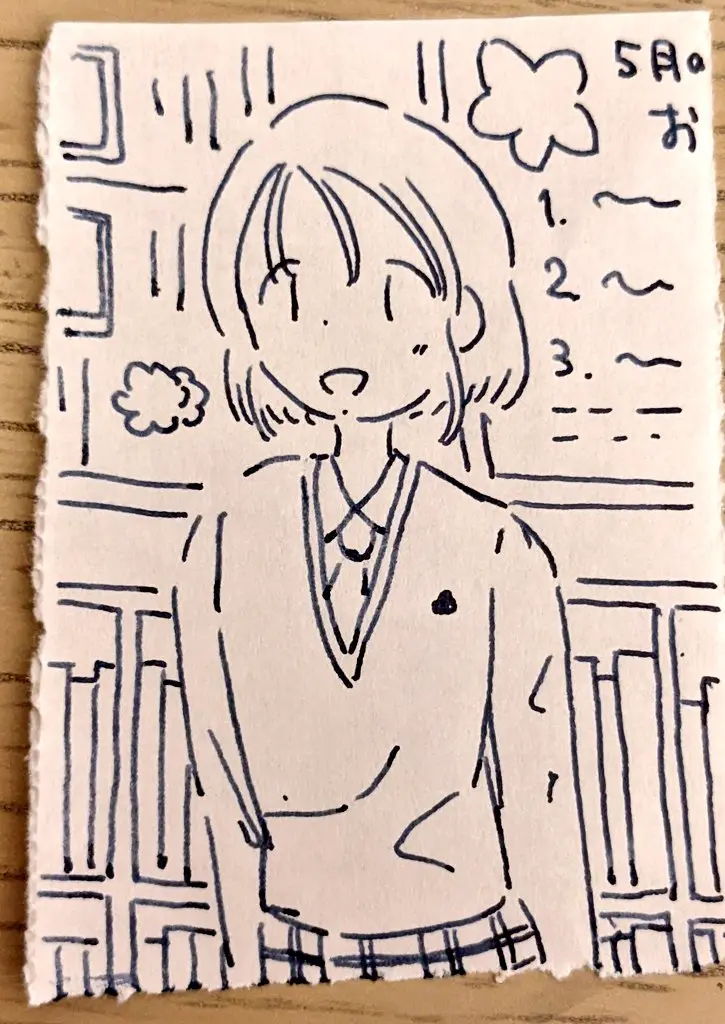 5月の
お
1.
2
3.